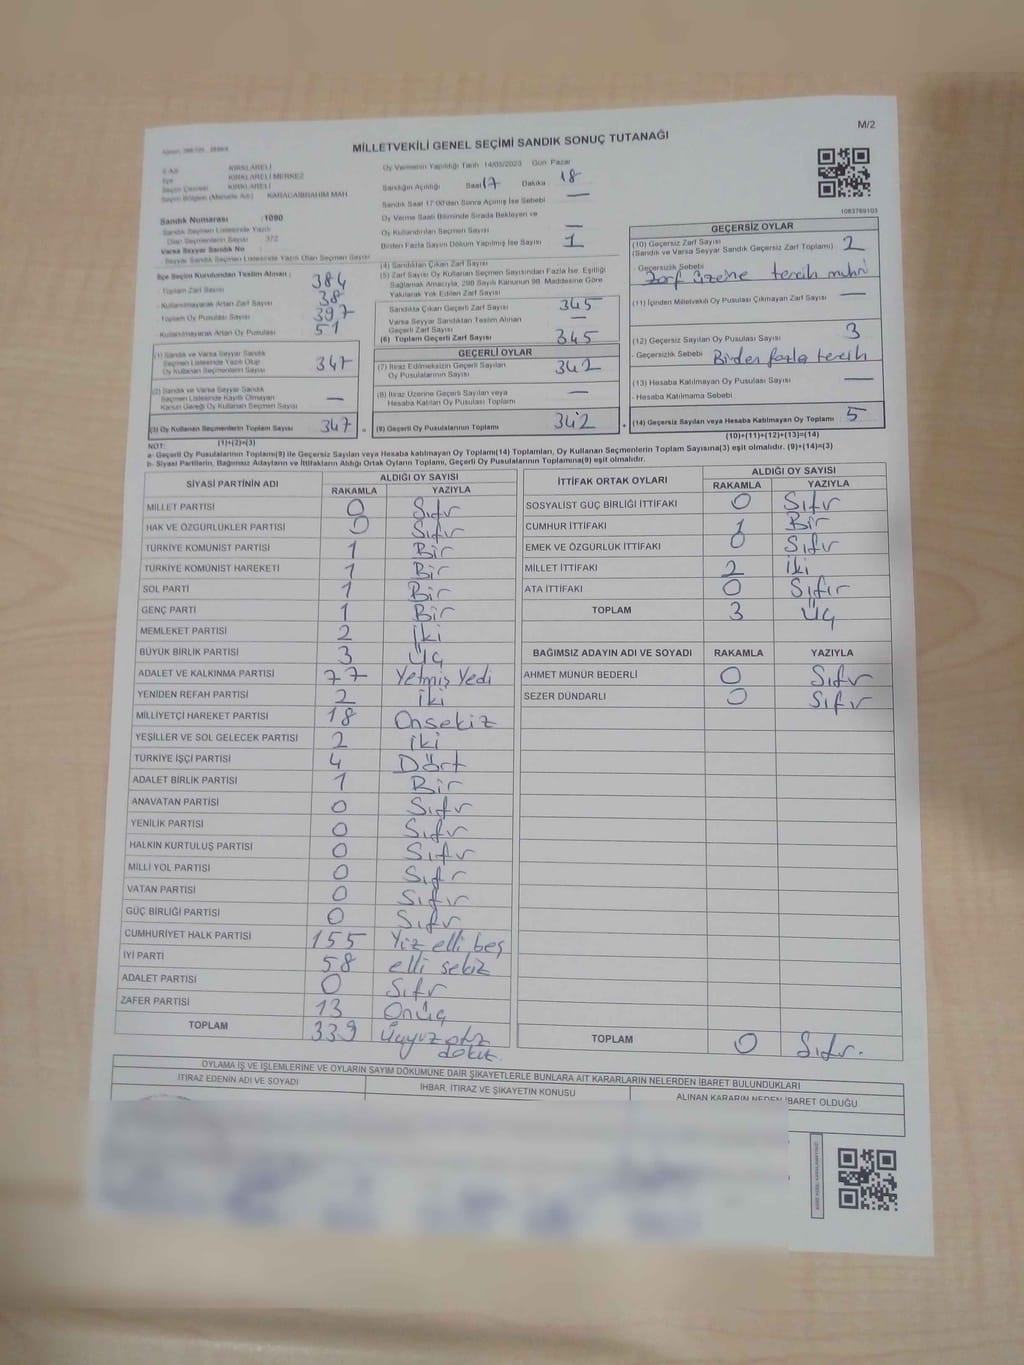 M/2
MİLLETVEKİLİ GENEL SEÇİMİ SANDIK SONUÇ TUTANAĞI
KIRKLARELİ
KIRKLARELİ MERKEZ
KIRKLARELİ
KARACAİBRAHİM MAH.
Sandık Numarası :1090
Sandık Seçmen Listesinde Yazılı
Olan Seçmenlerin Sayısı 372
Varsa Seyyar Sandık No
Seyyar Sandık Seçmen Listesinde Yazılı Olan Seçmen Sayısı
İlçe Seçim Kurulundan Teslim Alınan ;
Toplam Zarf Sayısı 384
Kullanılmayarak Artan Zarf Sayısı 38
Toplam Oy Pusulası Sayısı 397
Kullanılmayarak Artan Oy Pusulası 51
(1) Sandık ve Varsa Seyyar Sandık
Seçmen Listesinde Yazılı Olup
Oy Kullanan Seçmenlerin Sayısı 347
(2) Sandık ve Varsa Seyyar Sandık
Seçmen Listesinde Kayıtlı Olmayan
Kanun Gereği Oy Kullanan Seçmen Sayısı —
(3) Oy Kullanan Seçmenlerin Toplam Sayısı 347
(1)+(2)=(3)
Oy Vermenin Yapıldığı Tarih 14/05/2023 Gün Pazar
Sandığın Açıldığı Saat 17 Dakika 18
Sandık Saat 17:00'den Sonra Açılmış İse Sebebi —
Oy Verme Saati Bitiminde Sırada Bekleyen ve
Oy Kullandırılan Seçmen Sayısı —
Birden Fazla Sayım Döküm Yapılmış İse Sayısı 1
(4) Sandıktan Çıkan Zarf Sayısı
(5) Zarf Sayısı Oy Kullanan Seçmen Sayısından Fazla İse, Eşitliği
Sağlamak Amacıyla, 298 Sayılı Kanunun 98. Maddesine Göre
Yakılarak Yok Edilen Zarf Sayısı
Sandıkta Çıkan Geçerli Zarf Sayısı 345
Varsa Seyyar Sandıktan Teslim Alınan
Geçerli Zarf Sayısı —
(6) Toplam Geçerli Zarf Sayısı 345
GEÇERLİ OYLAR
(7) İtiraz Edilmeksizin Geçerli Sayılan
Oy Pusulalarının Sayısı 342
(8) İtiraz Üzerine Geçerli Sayılan veya
Hesaba Katılan Oy Pusulası Toplamı —
(9) Geçerli Oy Pusulalarının Toplamı 342
1083789103
GEÇERSİZ OYLAR
(10) Geçersiz Zarf Sayısı
(Sandık ve Varsa Seyyar Sandık Geçersiz Zarf Toplamı) 2
- Geçersizlik Sebebi
Zarf üzerine tercih mührü
(11) İçinden Milletvekili Oy Pusulası Çıkmayan Zarf Sayısı —
(12) Geçersiz Sayılan Oy Pusulası Sayısı 3
- Geçersizlik Sebebi Birden fazla tercih
(13) Hesaba Katılmayan Oy Pusulası Sayısı —
- Hesaba Katılmama Sebebi
(14) Geçersiz Sayılan veya Hesaba Katılmayan Oy Toplamı 5
(10)+(11)+(12)+(13)=(14)
NOT:
a- Geçerli Oy Pusulalarının Toplamı(9) ile Geçersiz Sayılan veya Hesaba katılmayan Oy Toplamı(14) Toplamları, Oy Kullanan Seçmenlerin Toplam Sayısına(3) eşit olmalıdır. (9)+(14)=(3)
b- Siyasi Partilerin, Bağımsız Adayların ve İttifakların Aldığı Ortak Oyların Toplamı, Geçerli Oy Pusulalarının Toplamına(9) eşit olmalıdır.
SİYASİ PARTİNİN ADI ALDIĞI OY SAYISI
RAKAMLA YAZIYLA
MİLLET PARTİSİ 0 Sıfır
HAK VE ÖZGÜRLÜKLER PARTİSİ 0 Sıfır
TÜRKİYE KOMÜNİST PARTİSİ 1 Bir
TÜRKİYE KOMÜNİST HAREKETİ 1 Bir
SOL PARTİ 1 Bir
GENÇ PARTİ 1 Bir
MEMLEKET PARTİSİ 2 İki
BÜYÜK BİRLİK PARTİSİ 3 Üç
ADALET VE KALKINMA PARTİSİ 77 Yetmiş Yedi
YENİDEN REFAH PARTİSİ 2 İki
MİLLİYETÇİ HAREKET PARTİSİ 18 Onsekiz
YEŞİLLER VE SOL GELECEK PARTİSİ 2 İki
TÜRKİYE İŞÇİ PARTİSİ 4 Dört
ADALET BİRLİK PARTİSİ 1 Bir
ANAVATAN PARTİSİ 0 Sıfır
YENİLİK PARTİSİ 0 Sıfır
HALKIN KURTULUŞ PARTİSİ 0 Sıfır
MİLLİ YOL PARTİSİ 0 Sıfır
VATAN PARTİSİ 0 Sıfır
GÜÇ BİRLİĞİ PARTİSİ 0 Sıfır
CUMHURİYET HALK PARTİSİ 155 Yüz elli beş
İYİ PARTİ 58 elli sekiz
ADALET PARTİSİ 0 Sıfır
ZAFER PARTİSİ 13 Onüç
TOPLAM 339 Üçyüz otuz dokuz
İTTİFAK ORTAK OYLARI ALDIĞI OY SAYISI
RAKAMLA YAZIYLA
SOSYALİST GÜÇ BİRLİĞİ İTTİFAKI 0 Sıfır
CUMHUR İTTİFAKI 1 Bir
EMEK VE ÖZGÜRLÜK İTTİFAKI 0 Sıfır
MİLLET İTTİFAKI 2 İki
ATA İTTİFAKI 0 Sıfır
TOPLAM 3 Üç
BAĞIMSIZ ADAYIN ADI VE SOYADI RAKAMLA YAZIYLA
AHMET MÜNÜR BEDERLİ 0 Sıfır
SEZER DÜNDARLI 0 Sıfır
TOPLAM 0 Sıfır.
OYLAMA İŞ VE İŞLEMLERİNE VE OYLARIN SAYIM DÖKÜMÜNE DAİR ŞİKAYETLERLE BUNLARA AİT KARARLARIN NELERDEN İBARET BULUNDUKLARI
İTİRAZ EDENİN ADI VE SOYADI İHBAR, İTİRAZ VE ŞİKAYETİN KONUSU ALINAN KARARIN NEDEN İBARET OLDUĞU